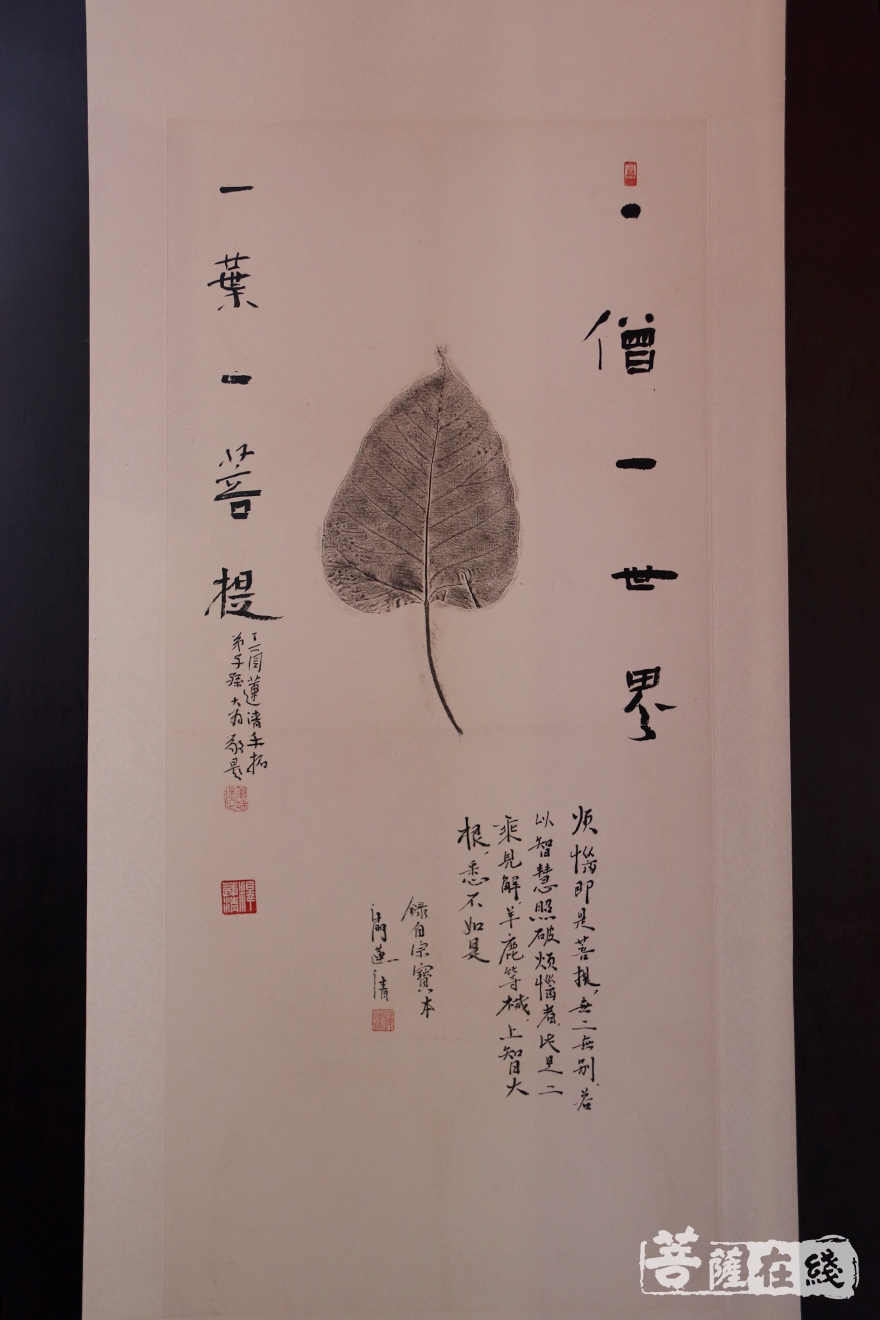 一僧一世界
一葉一菩提
弟子孫大为敬題
煩惱即是菩提，無二無別，若
以智慧照破煩惱者，此是二
乘見解，羊鹿等機，上智大
根，悉不如是
錄自宗寶本
菩薩在綫